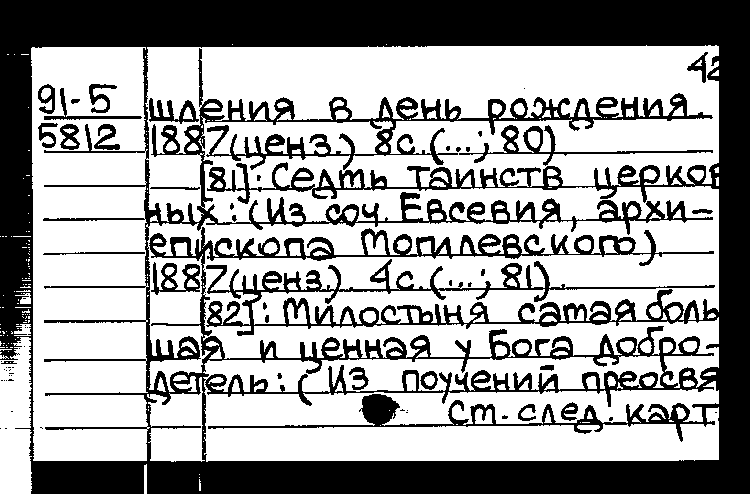 42
91-5 шления в день рождения.
5812 1887(ценз.) 8с.(...; 80)
[81]: Седмь таинств церков
ных: (Из соч. Евсевия, архи-
епископа Могилевского).
1887(ценз.) 4с.(...; 81).
[82]: Милостыня самая боль
шая и ценная у Бога добро-
детель: (Из поучений преосвя
см. след. карт.